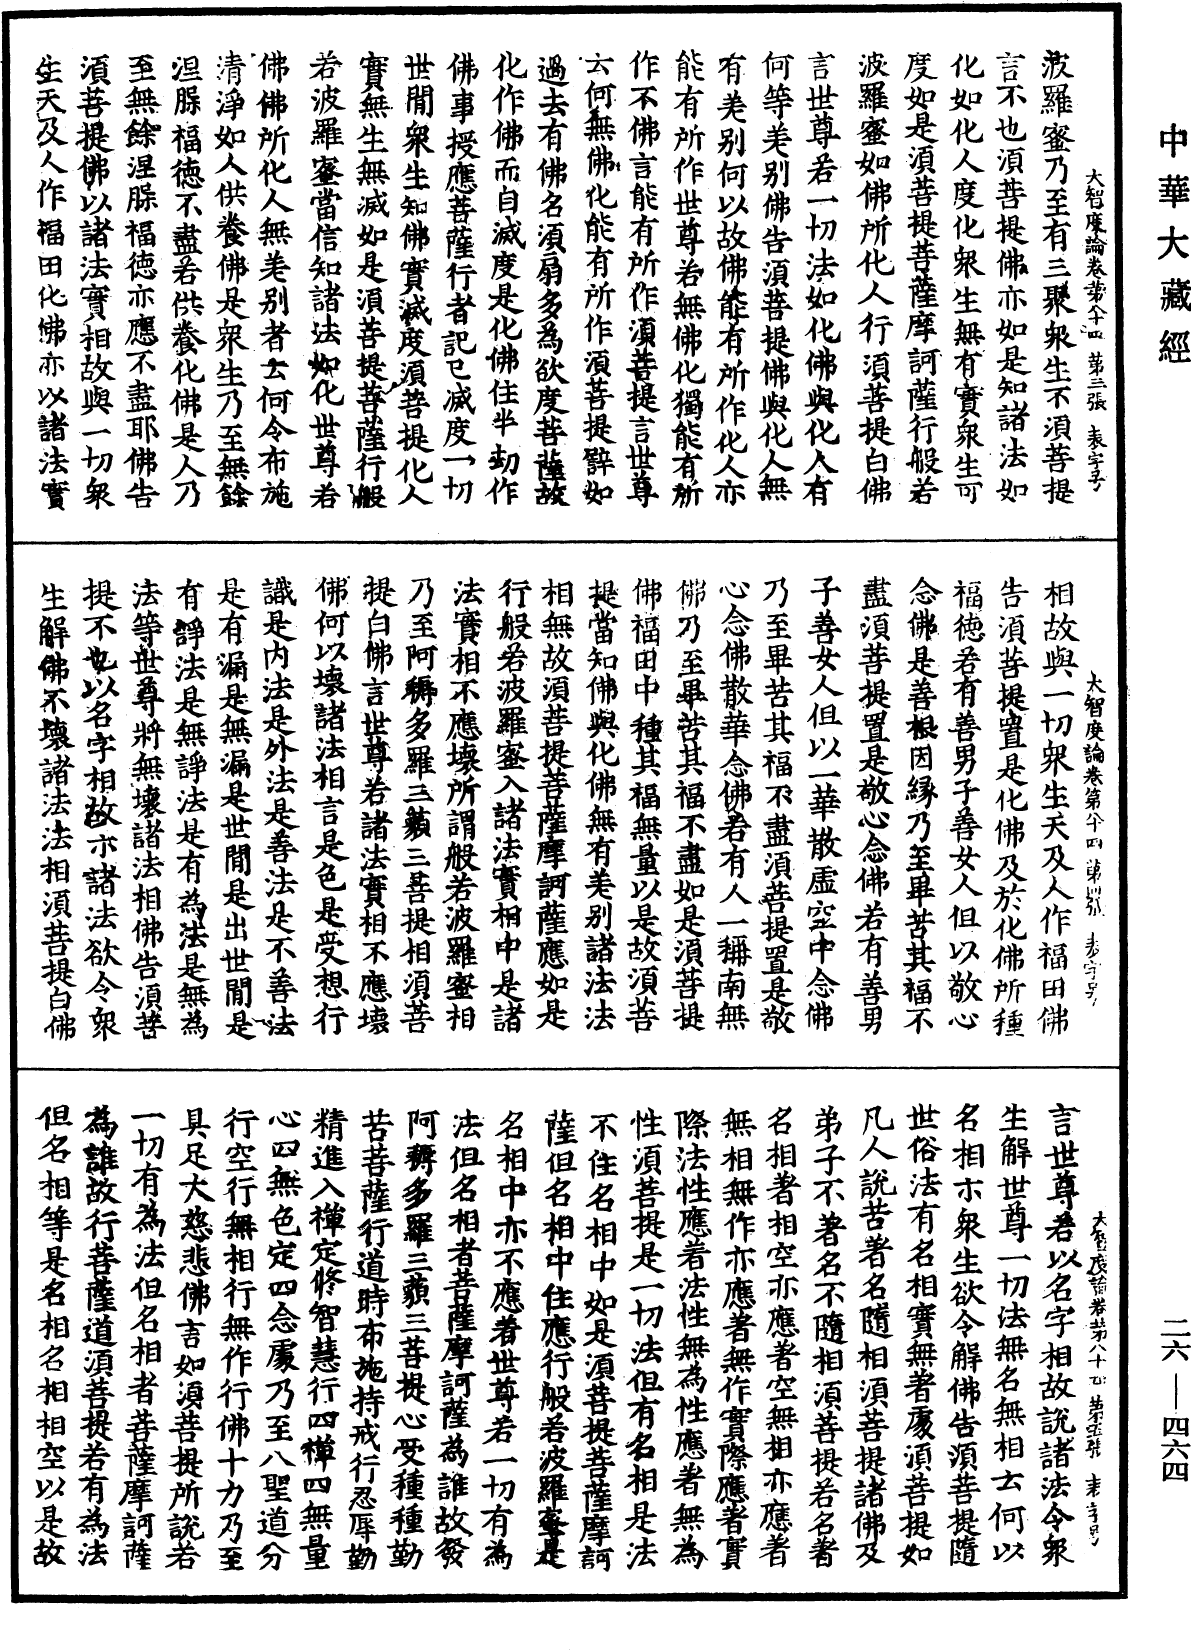 中華大藏經
大智度論卷第八十四　第三張　表字号
波羅蜜乃至有三聚衆生不須菩提
言不也須菩提佛亦如是知諸法如
化如化人度化衆生無有實衆生可
度如是須菩提菩薩摩訶薩行般若
波羅蜜如佛所化人行須菩提白佛
言世尊若一切法如化佛與化人有
何等差别佛告須菩提佛與化人無
有差别何以故佛能有所作化人亦
能有所作世尊若無佛化獨能有所
作不佛言能有所作須菩提言世尊
云何無佛化能有所作須菩提譬如
過去有佛名須扇多為欲度菩薩故
化作佛而自滅度是化佛住半劫作
佛事授應菩薩行者記已滅度一切
世間衆生知佛實滅度須菩提化人
實無生無滅如是須菩提菩薩行般
若波羅蜜當信知諸法如化世尊若
佛佛所化人無差别者云何令布施
清淨如人供養佛是衆生乃至無餘
涅脲福德不盡若供養化佛是人乃
至無餘涅脲福德亦應不盡耶佛告
須菩提佛以諸法實相故與一切衆
生天及人作福田化佛亦以諸法實
大智度論卷第八十四　第四張　表字号
相故與一切衆生天及人作福田佛
告須菩提置是化佛及於化佛所種
福德若有善男子善女人但以敬心
念佛是善根因緣乃至畢苦其福不
盡須菩提置是敬心念佛若有善男
子善女人但以一華散虛空中念佛
乃至畢苦其福不盡須菩提置是敬
心念佛散華念佛若有人一稱南無
佛乃至畢苦其福不盡如是須菩提
佛福田中種其福無量以是故須菩
提當知佛與化佛無有差别諸法法
相無故須菩提菩薩摩訶薩應如是
行般若波羅蜜入諸法實相中是諸
法實相不應壞所謂般若波羅蜜相
乃至阿耨多羅三藐三菩提相須菩
提白佛言世尊若諸法實相不應壞
佛何以壞諸法相言是色是受想行
識是内法是外法是善法是不善法
是有漏是無漏是世間是出世間是
有諍法是無諍法是有為法是無為
法等世尊將無壞諸法相佛告須菩
提不也以名字相故示諸法欲令衆
生解佛不壞諸法法相須菩提白佛
大智度論卷第八十四　第五張　表字号
言世尊若以名字相故說諸法令衆
生解世尊一切法無名無相云何以
名相示衆生欲令解佛告須菩提隨
世俗法有名相實無著處須菩提如
凡人說苦著名隨相須菩提諸佛及
弟子不著名不隨相須菩提若名著
名相著相空亦應著空無相亦應著
無相無作亦應著無作實際應著實
際法性應著法性無為性應著無為
性須菩提是一切法但有名相是法
不住名相中如是須菩提菩薩摩訶
薩但名相中住應行般若波羅蜜是
名相中亦不應著世尊若一切有為
法但名相者菩薩摩訶薩為誰故發
阿耨多羅三藐三菩提心受種種勤
苦菩薩行道時布施持戒行忍辱勤
精進入禪定修智慧行四禪四無量
心四無色定四念處乃至八聖道分
行空行無相行無作行佛十力乃至
具足大慈悲佛言如須菩提所說若
一切有為法但名相者菩薩摩訶薩
為誰故行菩薩道須菩提若有為法
但名相等是名相名相相空以是故
二六—四六四